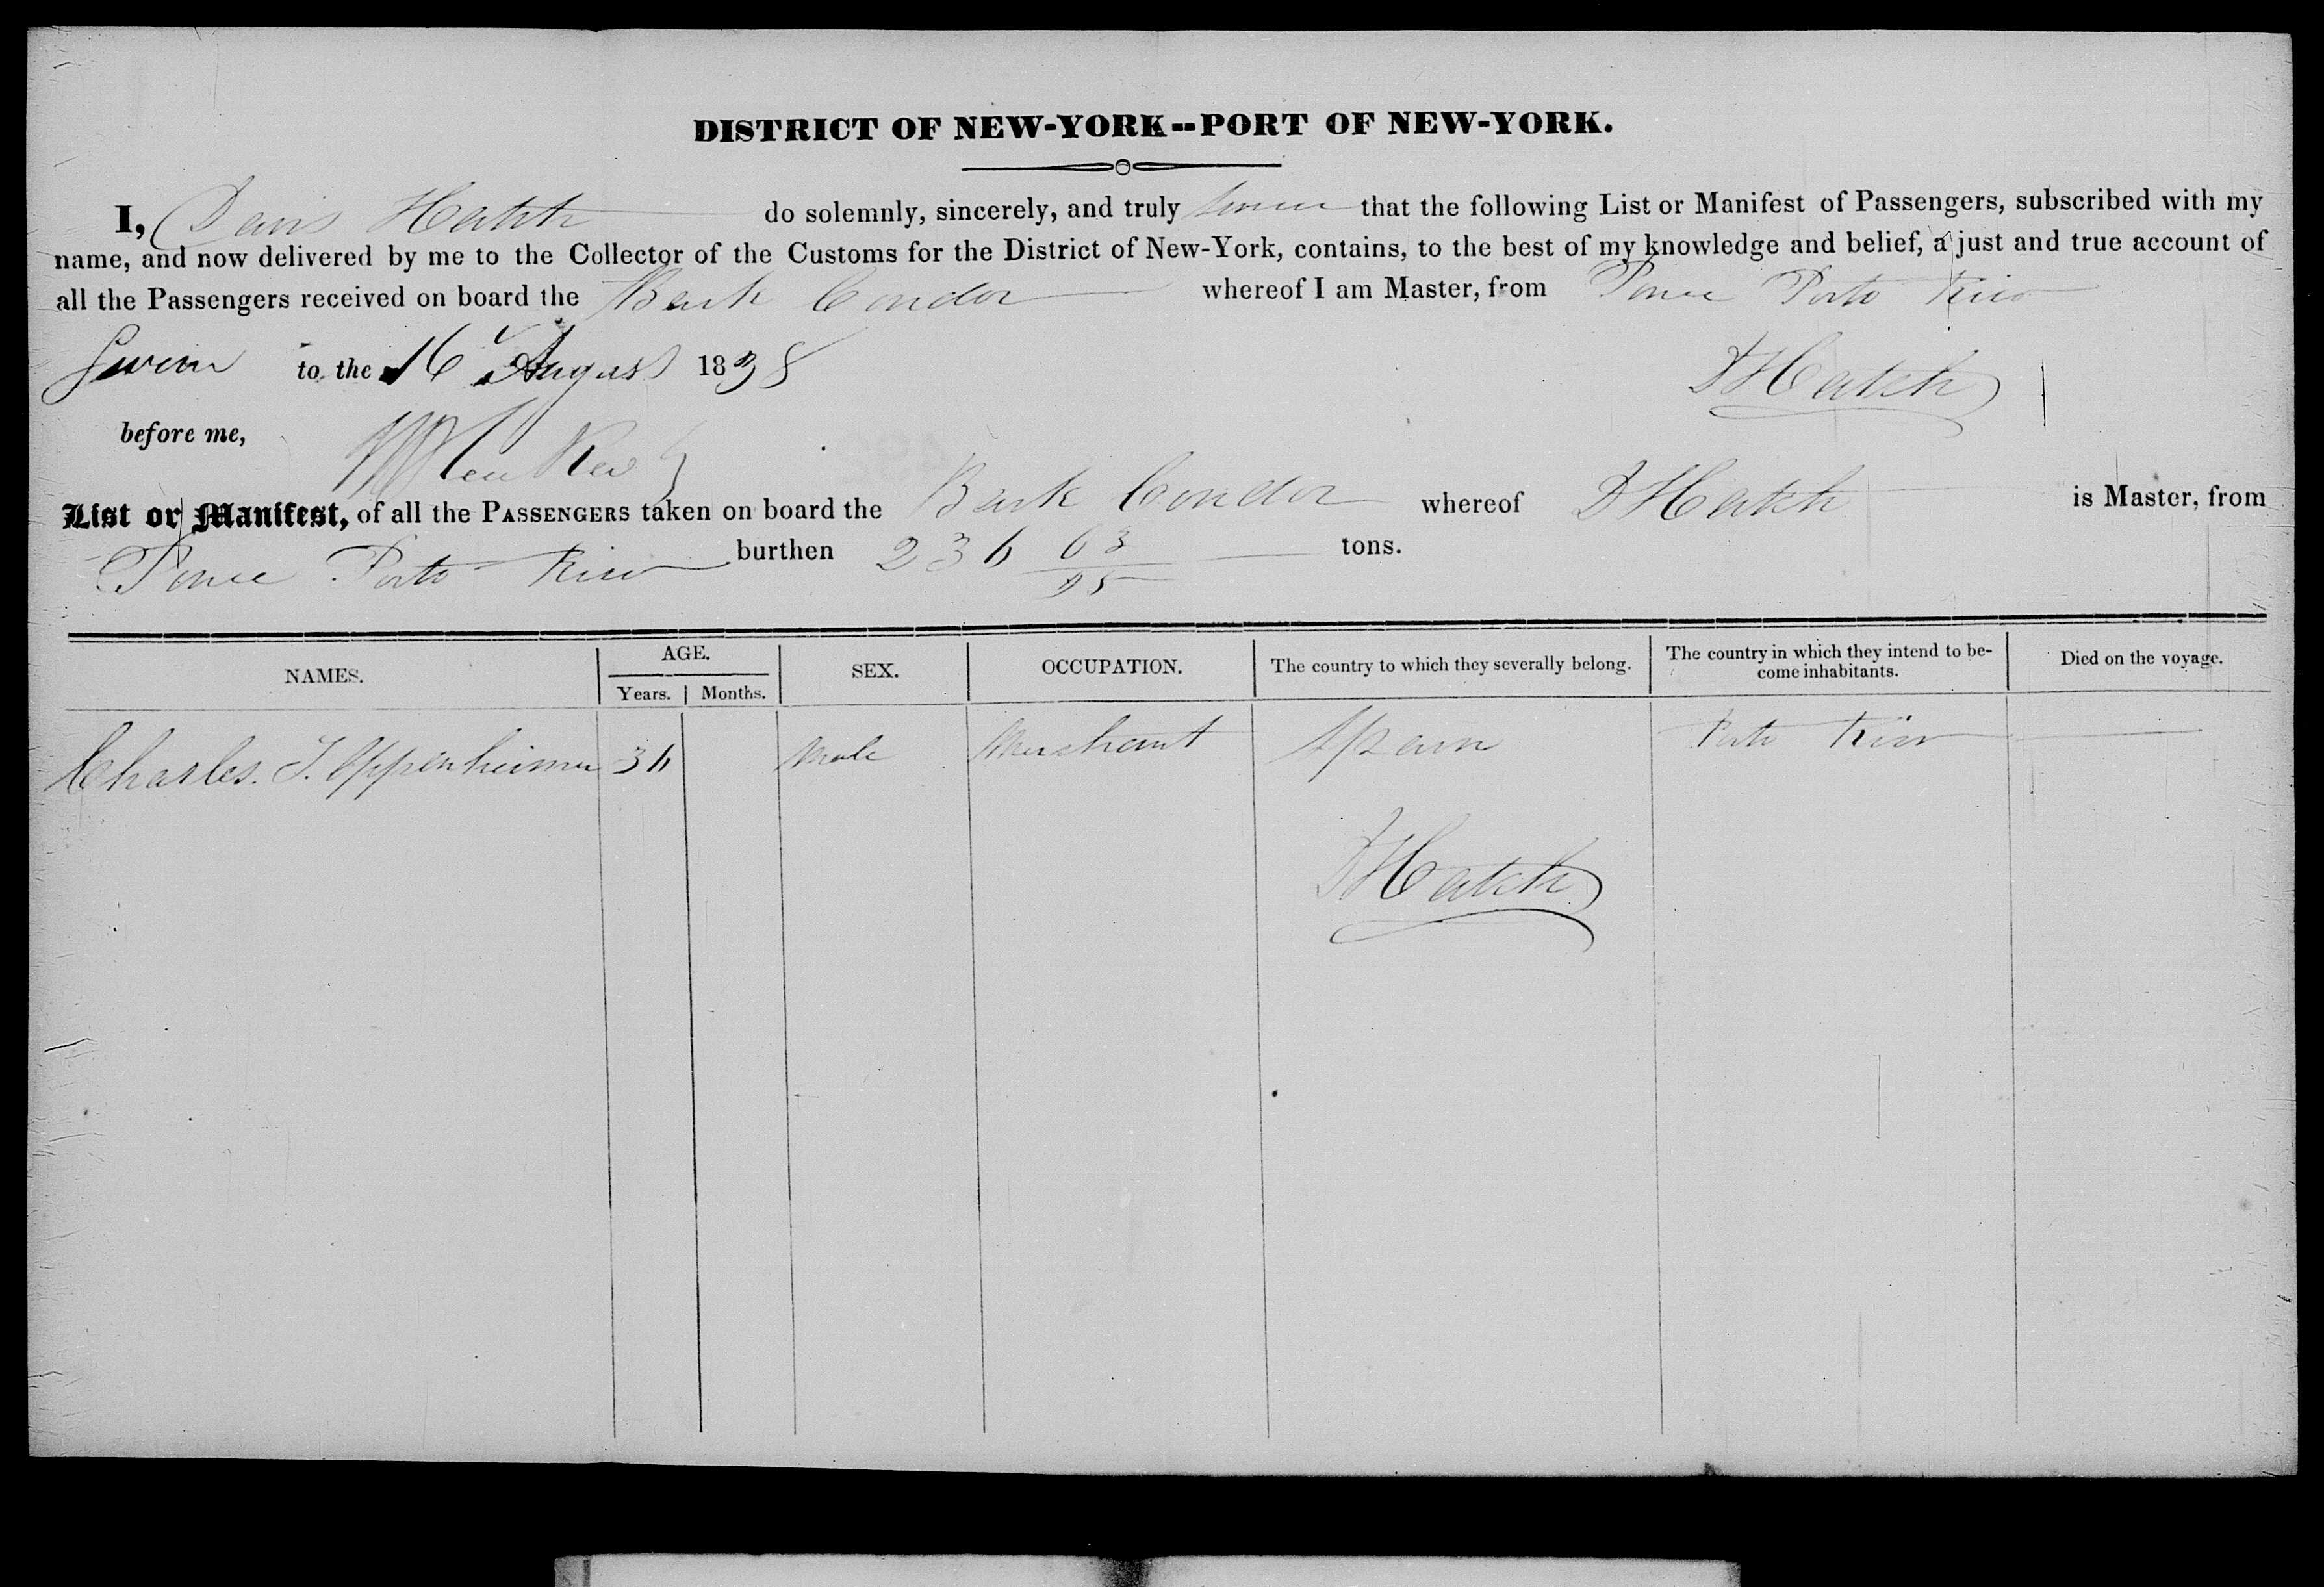 DISTRICT OF NEW-YORK--PORT OF NEW-YORK.
I, Davis Hatch do solemnly, sincerely, and truly swear that the following List or Manifest of Passengers, subscribed with my
name, and now delivered by me to the Collector of the Customs for the District of New-York, contains, to the best of my knowledge and belief, a just and true account of
all the Passengers received on board the Bark Condor whereof I am Master, from Ponce Porto Rico
Sworn to the 16 August 1838
D Hatch
before me,
List or Manifest, of all the PASSENGERS taken on board the Bark Condor whereof D Hatch is Master, from
Ponce Porto Rico burthen 236 63/95 tons.
NAMES. AGE. Years. Months. SEX. OCCUPATION. The country to which they severally belong. The country in which they intend to be-come inhabitants. Died on the voyage.
Charles. T. Oppenheimer 36 Male Merchant Spain Porto Rico
D Hatch